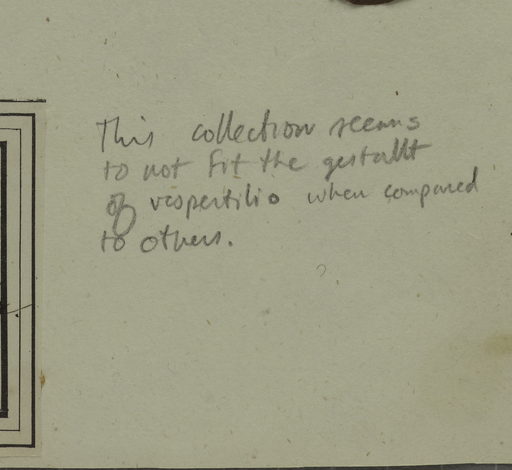 This collection seems
to not fit the gestallt
of vespertilio when compared
to others.